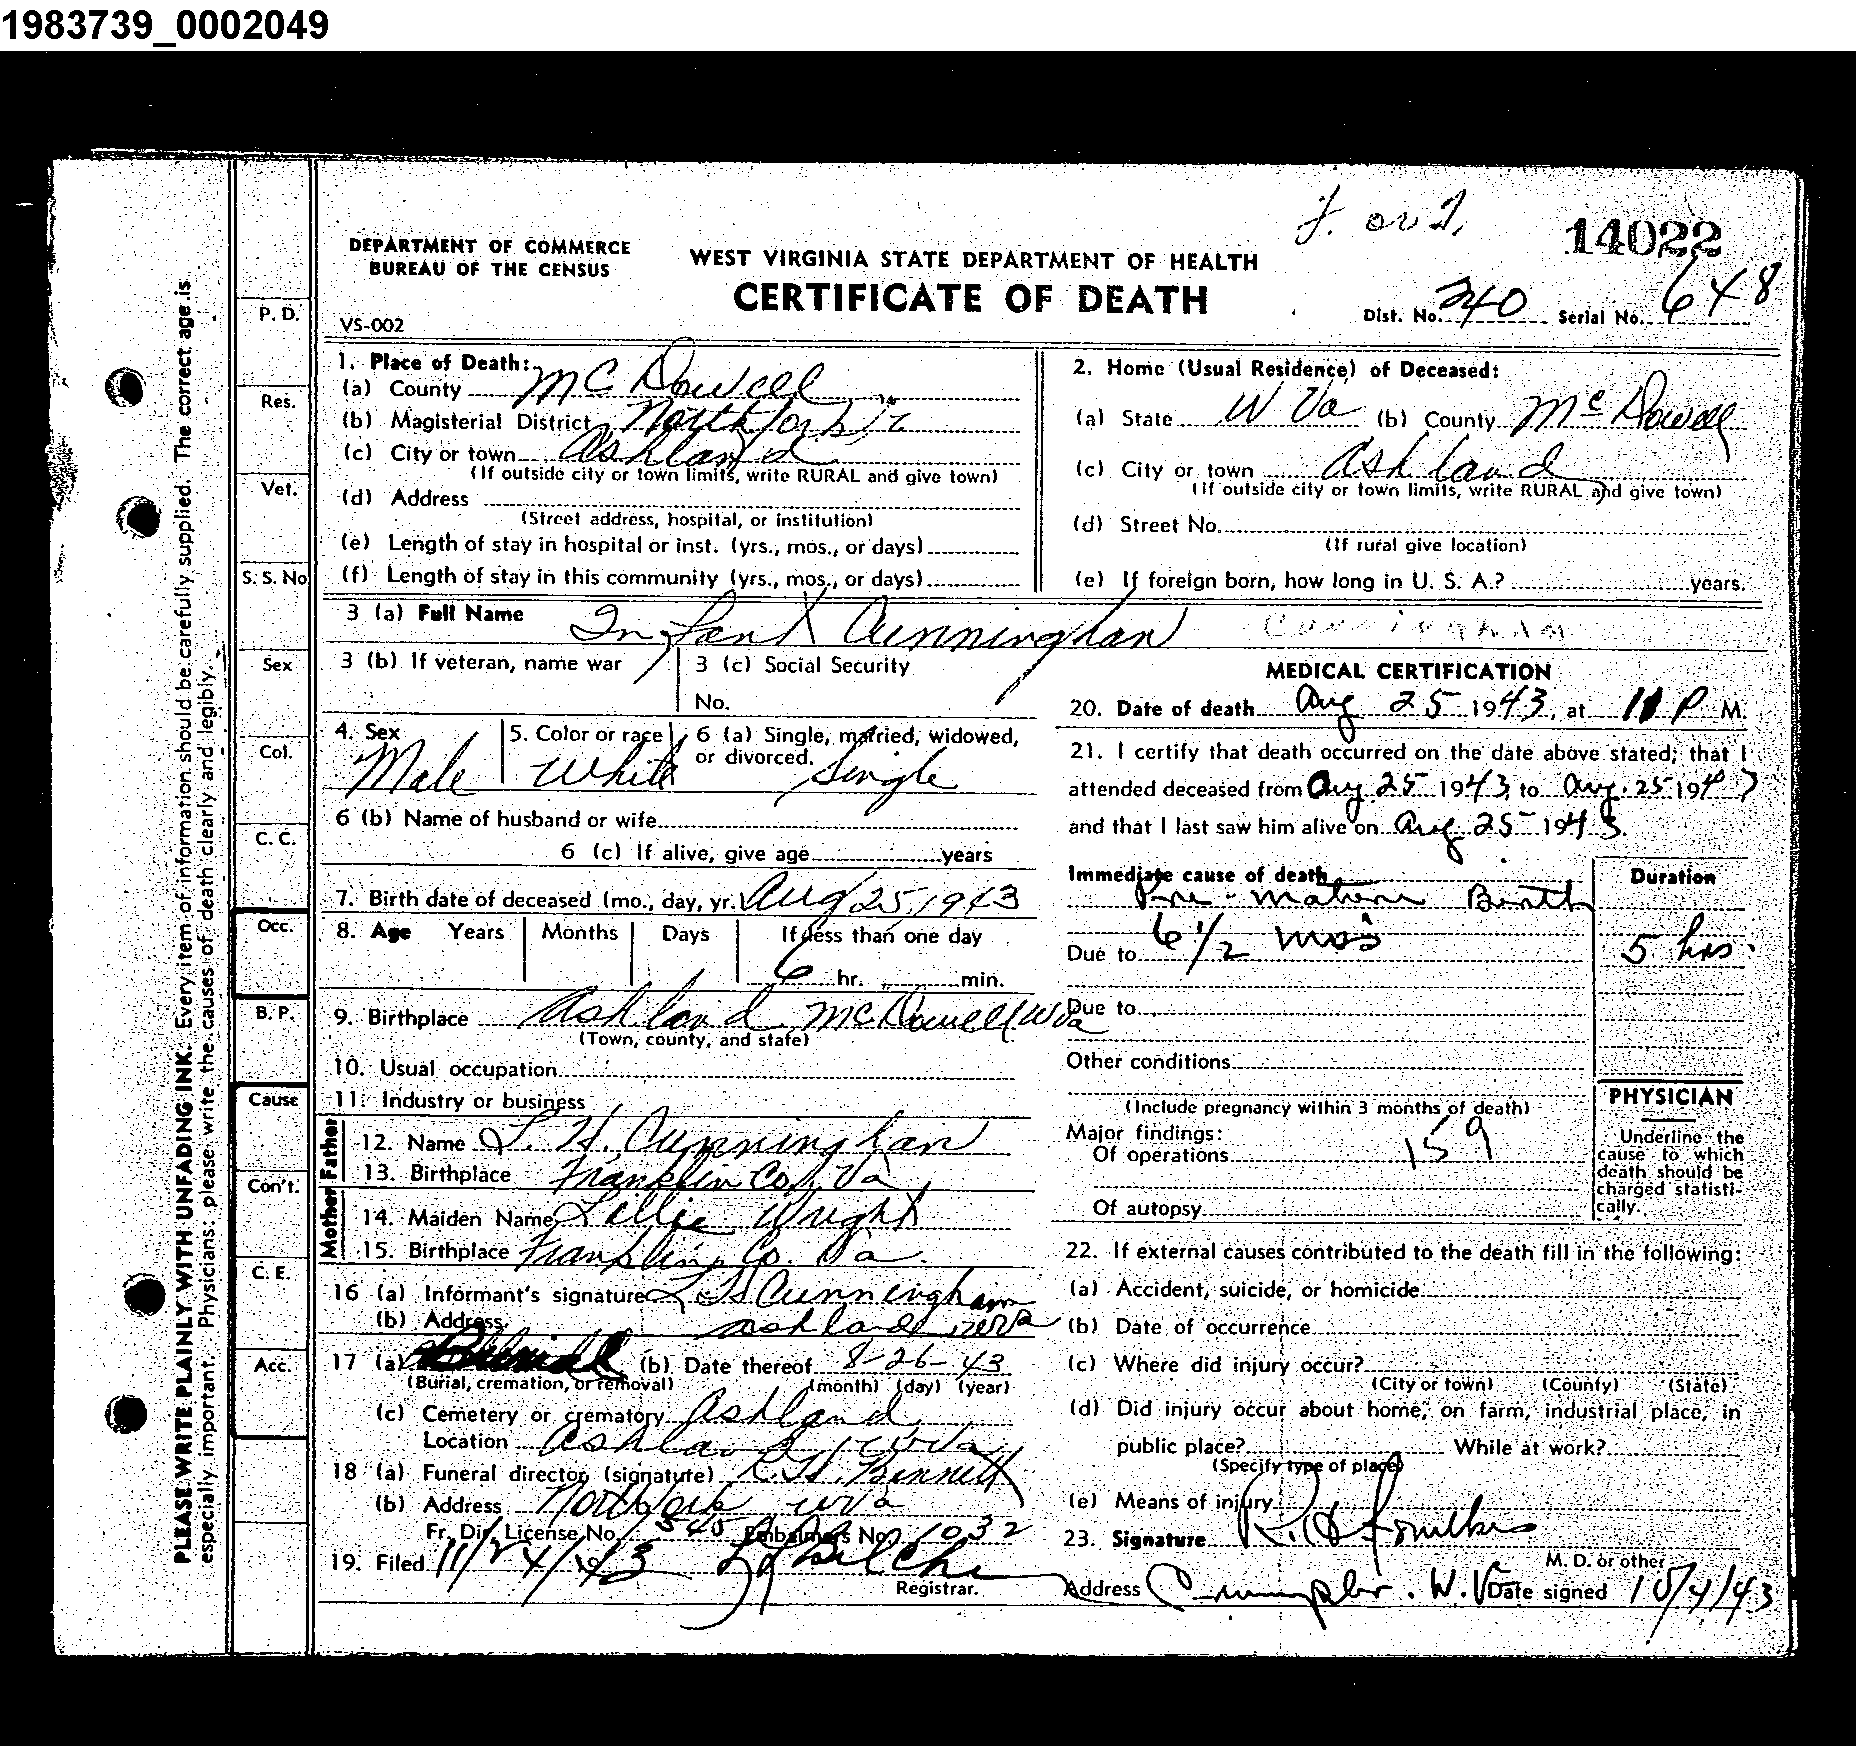 1983739_0002049
14022
DEPARTMENT OF COMMERCE
BUREAU OF THE CENSUS
WEST VIRGINIA STATE DEPARTMENT OF HEALTH
CERTIFICATE OF DEATH
VS-002
Dist. No. 240 Serial No. 648
PLEASE WRITE PLAINLY WITH UNFADING INK. Every item of information should be carefully supplied. The correct age is
especially important. Physicians: please write the causes of death clearly and legibly.
P. D.
Res.
Vet.
S. S. No
Sex
Col.
C. C.
Occ.
B. P.
Cause
Con't.
C. E.
Acc.
1. Place of Death:
(a) County McDowell
(b) Magisterial District Northfork
(c) City or town Ashland
(If outside city or town limits, write RURAL and give town)
(d) Address
(Street address, hospital, or institution)
(e) Length of stay in hospital or inst. (yrs., mos., or days)
(f) Length of stay in this community (yrs., mos., or days)
2. Home (Usual Residence) of Deceased:
(a) State W Va (b) County McDowell
(c) City or town Ashland
(If outside city or town limits, write RURAL and give town)
(d) Street No.
(If rural give location)
(e) If foreign born, how long in U. S. A.? years.
3 (a) Full Name Infant Cunningham CUNNINGHAM
3 (b) If veteran, name war
3 (c) Social Security
No.
4. Sex Male
5. Color or race White
6 (a) Single, married, widowed,
or divorced. Single
6 (b) Name of husband or wife
6 (c) If alive, give age years
7. Birth date of deceased (mo., day, yr.) Aug 25, 1943
8. Age Years Months Days If less than one day
6 hr. min.
9. Birthplace Ashland McDowell W Va
(Town, county, and state)
10. Usual occupation
11. Industry or business
Father
12. Name L. H. Cunningham
13. Birthplace Franklin Co, Va
Mother
14. Maiden Name Lillie Wright
15. Birthplace Franklin, Co. Va.
16 (a) Informant's signature L H Cunningham
(b) Address Ashland W Va
17 (a) (b) Date thereof 8-26-43
(Burial, cremation, or removal) (month) (day) (year)
(c) Cemetery or crematory Ashland
Location Ashland W Va
18 (a) Funeral director (signature) L. H. Bennett
(b) Address Northfork W Va
Fr. Dir. License No. 545 Embalmer's No. 1032
19. Filed 11/24/43
Registrar.
MEDICAL CERTIFICATION
20. Date of death Aug 25 1943, at 11 P M.
21. I certify that death occurred on the date above stated; that I
attended deceased from Aug 25 1943, to Aug. 25 1943
and that I last saw him alive on Aug 25 1943.
Immediate cause of death Duration
Pre-mature Birth
Due to 6 1/2 mos 5 hrs.
Due to
Other conditions
(Include pregnancy within 3 months of death)
Major findings:
Of operations 159
Of autopsy
PHYSICIAN
Underline the
cause to which
death should be
charged statisti-
cally.
22. If external causes contributed to the death fill in the following:
(a) Accident, suicide, or homicide
(b) Date of occurrence
(c) Where did injury occur?
(City or town) (County) (State)
(d) Did injury occur about home, on farm, industrial place, in
public place? While at work?
(Specify type of place)
(e) Means of injury
23. Signature
M. D. or other
Address Crumpler. W. V Date signed 10/4/43